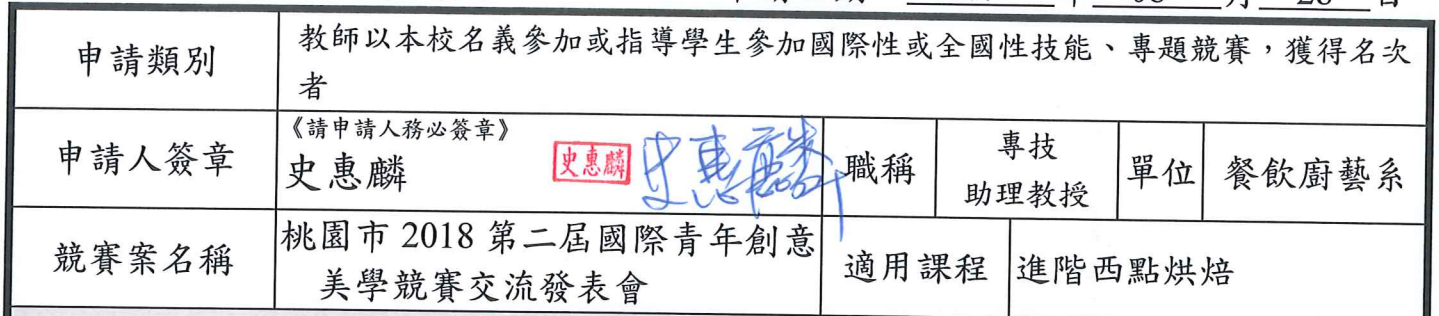 月 28 日
申請類別
教師以本校名義參加或指導學生參加國際性或全國性技能、專題競賽，獲得名次
者
申請人簽章
《請申請人務必簽章》
史惠麟
史惠麟
史惠麟
職稱
專技
助理教授
單位
餐飲廚藝系
競賽案名稱
桃園市 2018 第二屆國際青年創意
美學競賽交流發表會
適用課程
進階西點烘焙